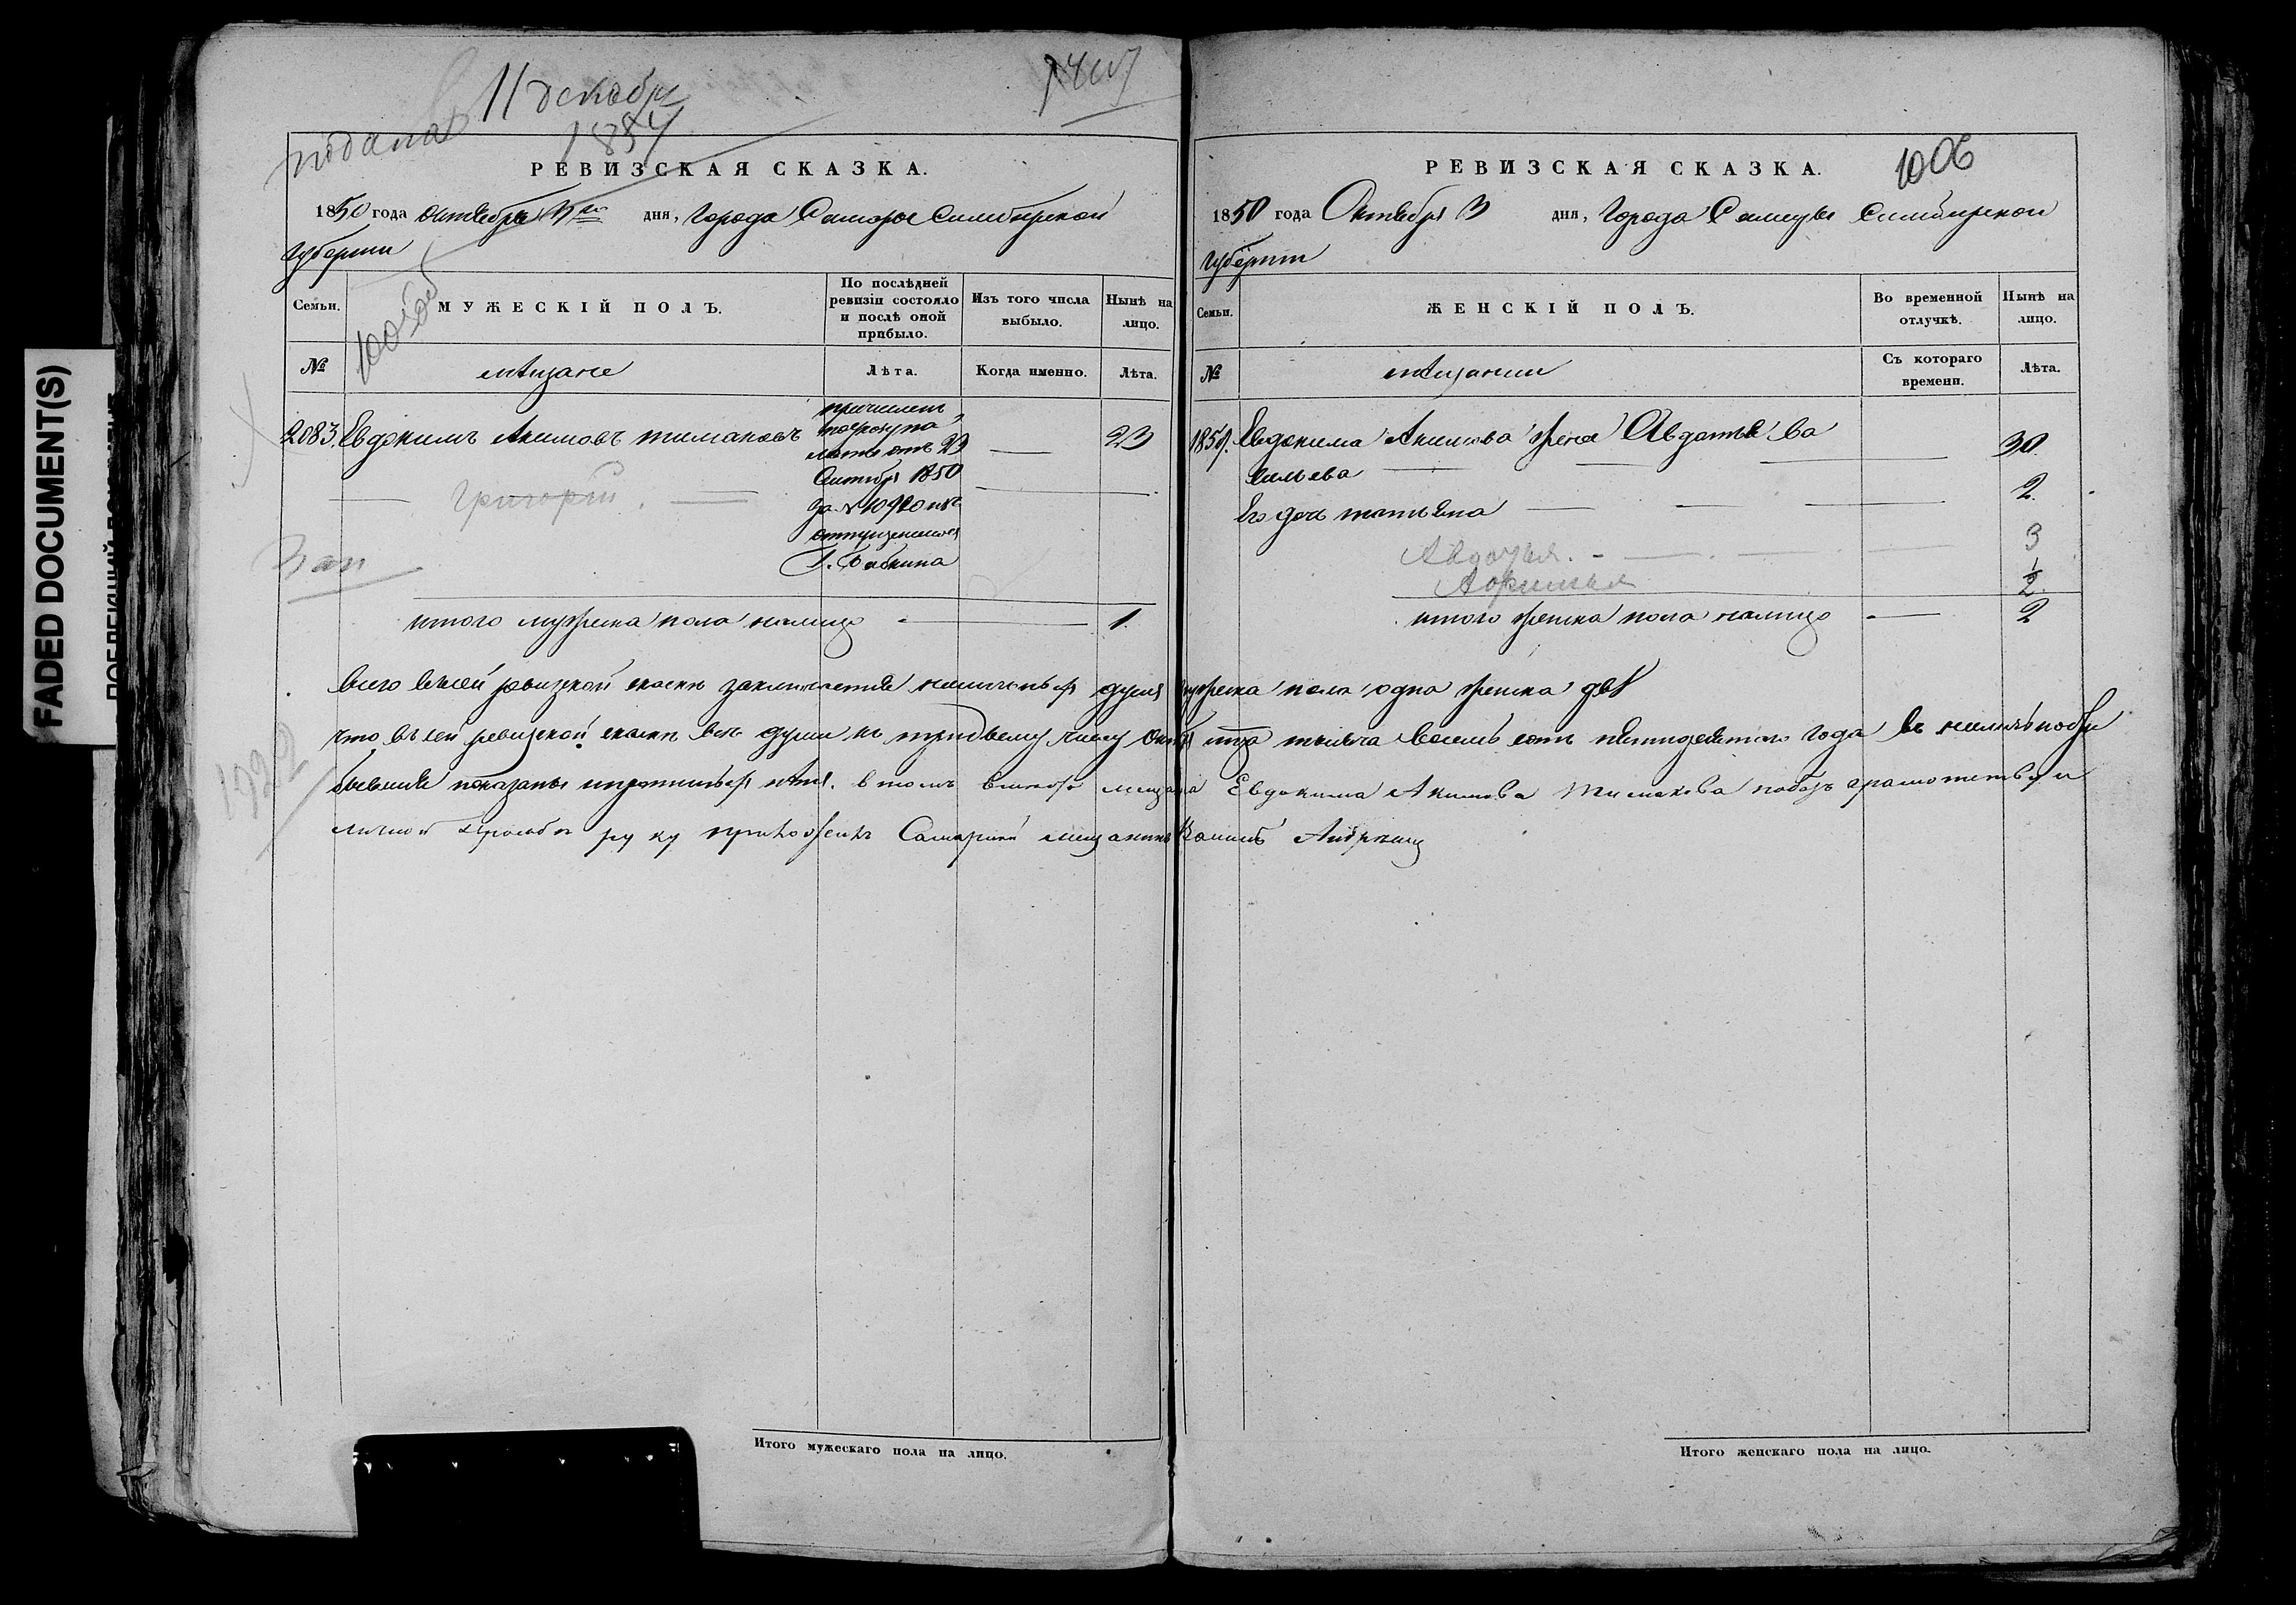 FADED DOCUMENT(S)
11 декабря
1857
подана
РЕВИЗСКАЯ СКАЗКА.
1850 года октября 3го дня, Города Самары Симбирской
губернии
Семьи.
МУЖЕСКІЙ ПОЛЪ.
По послѣдней ревизіи состояло и послѣ оной прибыло.
Изъ того числа выбыло.
Нынѣ на лицо.
№
мѣщане
Лѣта.
Когда именно.
Лѣта.
2083. Евдокимъ Акимовъ тимаковъ
23
причислен
отъ 23
Октября 1850
за № 10920
Бабкина
Григорій
Зап
итого мужеска пола налицо 1.
1006
РЕВИЗСКАЯ СКАЗКА.
1850 года Октября 3 дня, Города Самары Симбирской
губернии
Семьи.
ЖЕНСКІЙ ПОЛЪ.
Во временной отлучкѣ.
Нынѣ на лицо.
№
мѣщанки
Съ котораго времени.
Лѣта.
1850. Евдокима Акимова жена Авдотья Ва
30
сильева
Его дочь татьяна
2.
Авдотья.
3
1/2
итого женска пола налицо 2
всего въ сей ревизской скаски заключается наличныхъ душъ мужеска пола одна женска двѣ
что въ сей ревизской скаски всѣ души къ третьему числу Октя тысяча восемь сотъ пятидесятого года въ
показаны в томъ вместо мещанина Евдокима Акимова Тимакова
личной прозьбе руку приложилъ Самарский мещанинъ
Итого мужескаго пола на лицо.
Итого женскаго пола на лицо.